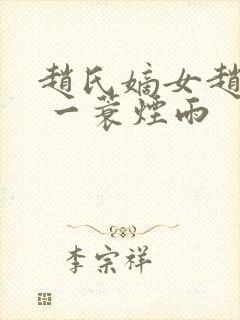 趙氏嫡女趙
一蓑煙雨
李宗祥